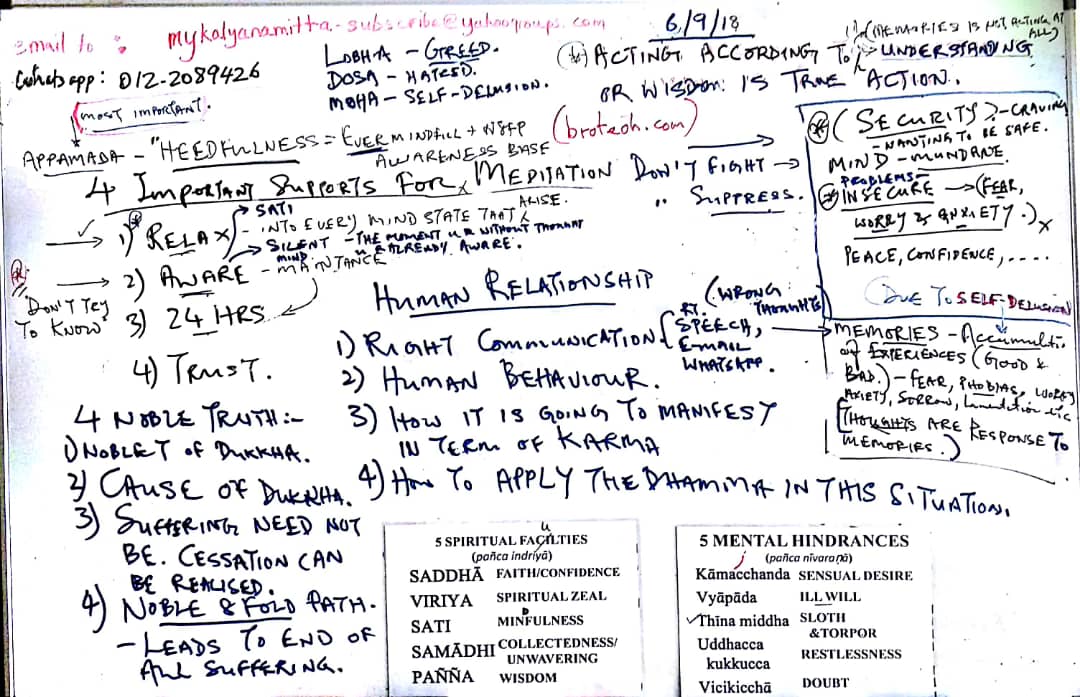 Email to : mykalyanamitta-subscribe@yahoogroups.com
Whatsapp: 012-2089426
LOBHA - GREED.
DOSA - HATRED.
MOHA - SELF-DELUSION.
6/9/18
(MEMORIES IS NOT ACTING AT ALL)
ACTING ACCORDING TO UNDERSTANDING
OR WISDOM: IS TRUE ACTION.
(broteoh.com)
MOST IMPORTANT.
APPAMADA - "HEEDFULNESS = EVER MINDFULL +
AWARENESS BASE
4 IMPORTANT SUPPORTS FOR MEDITATION
DON'T FIGHT →
" SUPPRESS.
1) RELAX
→ SATI
- INTO EVERY MIND STATE THAT ARISE.
→ SILENT MIND - THE MOMENT U R WITHOUT THOUGHT
U R ALREADY AWARE.
2) AWARE - MAINTANCE
DON'T TRY
TO KNOW
3) 24 HRS
4) TRUST.
(SECURITY ? - CRAVING
- WANTING TO BE SAFE.
MIND - MUNDANE
PROBLEMS -
INSECURE → (FEAR,
WORRY & ANXIETY.)
PEACE, CONFIDENCE, ....
(DUE TO SELF-DELUSION
MEMORIES - Accumulatio
of EXPERIENCES (GOOD &
BAD.) - FEAR, PHOBIAS, WORRY
ANXIETY, SORROW, Lamentation etc
[THOUGHTS ARE RESPONSE TO
MEMORIES.)
HUMAN RELATIONSHIP
1) RIGHT COMMUNICATION
RT. SPEECH,
EMAIL
WHATSAPP.
(WRONG THOUGHTS)
2) HUMAN BEHAVIOUR.
3) HOW IT IS GOING TO MANIFEST
IN TERM OF KARMA
4) HOW TO APPLY THE DHAMMA IN THIS SITUATION.
4 NOBLE TRUTH :-
1) NOBLE T OF DUKKHA.
2) CAUSE OF DUKKHA.
3) SUFFERING NEED NOT
BE. CESSATION CAN
BE REALISED.
4) NOBLE 8 FOLD PATH.
- LEADS TO END OF
ALL SUFFERING.
5 SPIRITUAL FACILTIES
u
(pañca indriyā)
SADDHĀ FAITH/CONFIDENCE
VIRIYA SPIRITUAL ZEAL
SATI MINFULNESS
D
SAMĀDHI COLLECTEDNESS/
UNWAVERING
PAÑÑA WISDOM
5 MENTAL HINDRANCES
(pañca nīvaraṇā)
Kāmacchanda SENSUAL DESIRE
Vyāpāda ILL WILL
Thīna middha SLOTH
&TORPOR
Uddhacca
kukkucca RESTLESSNESS
Vicikicchā DOUBT